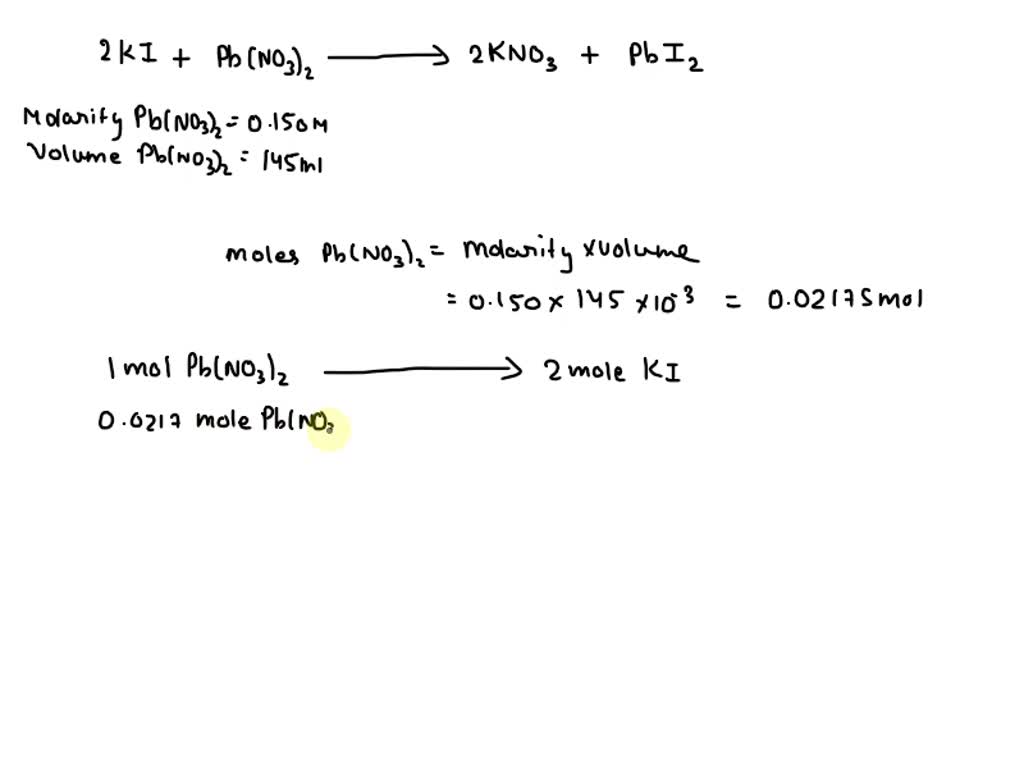 2KI + Pb(NO₃)₂ ⟶ 2KNO₃ + PbI₂
Molarity Pb(NO₃)₂ = 0.150M
Volume Pb(NO₃)₂ = 145ml
moles Pb(NO₃)₂ = Molarity x volume
= 0.150 x 145 x 10⁻³ = 0.02175 mol
1 mol Pb(NO₃)₂ ⟶ 2 mole KI
0.0217 mole Pb(NO₃